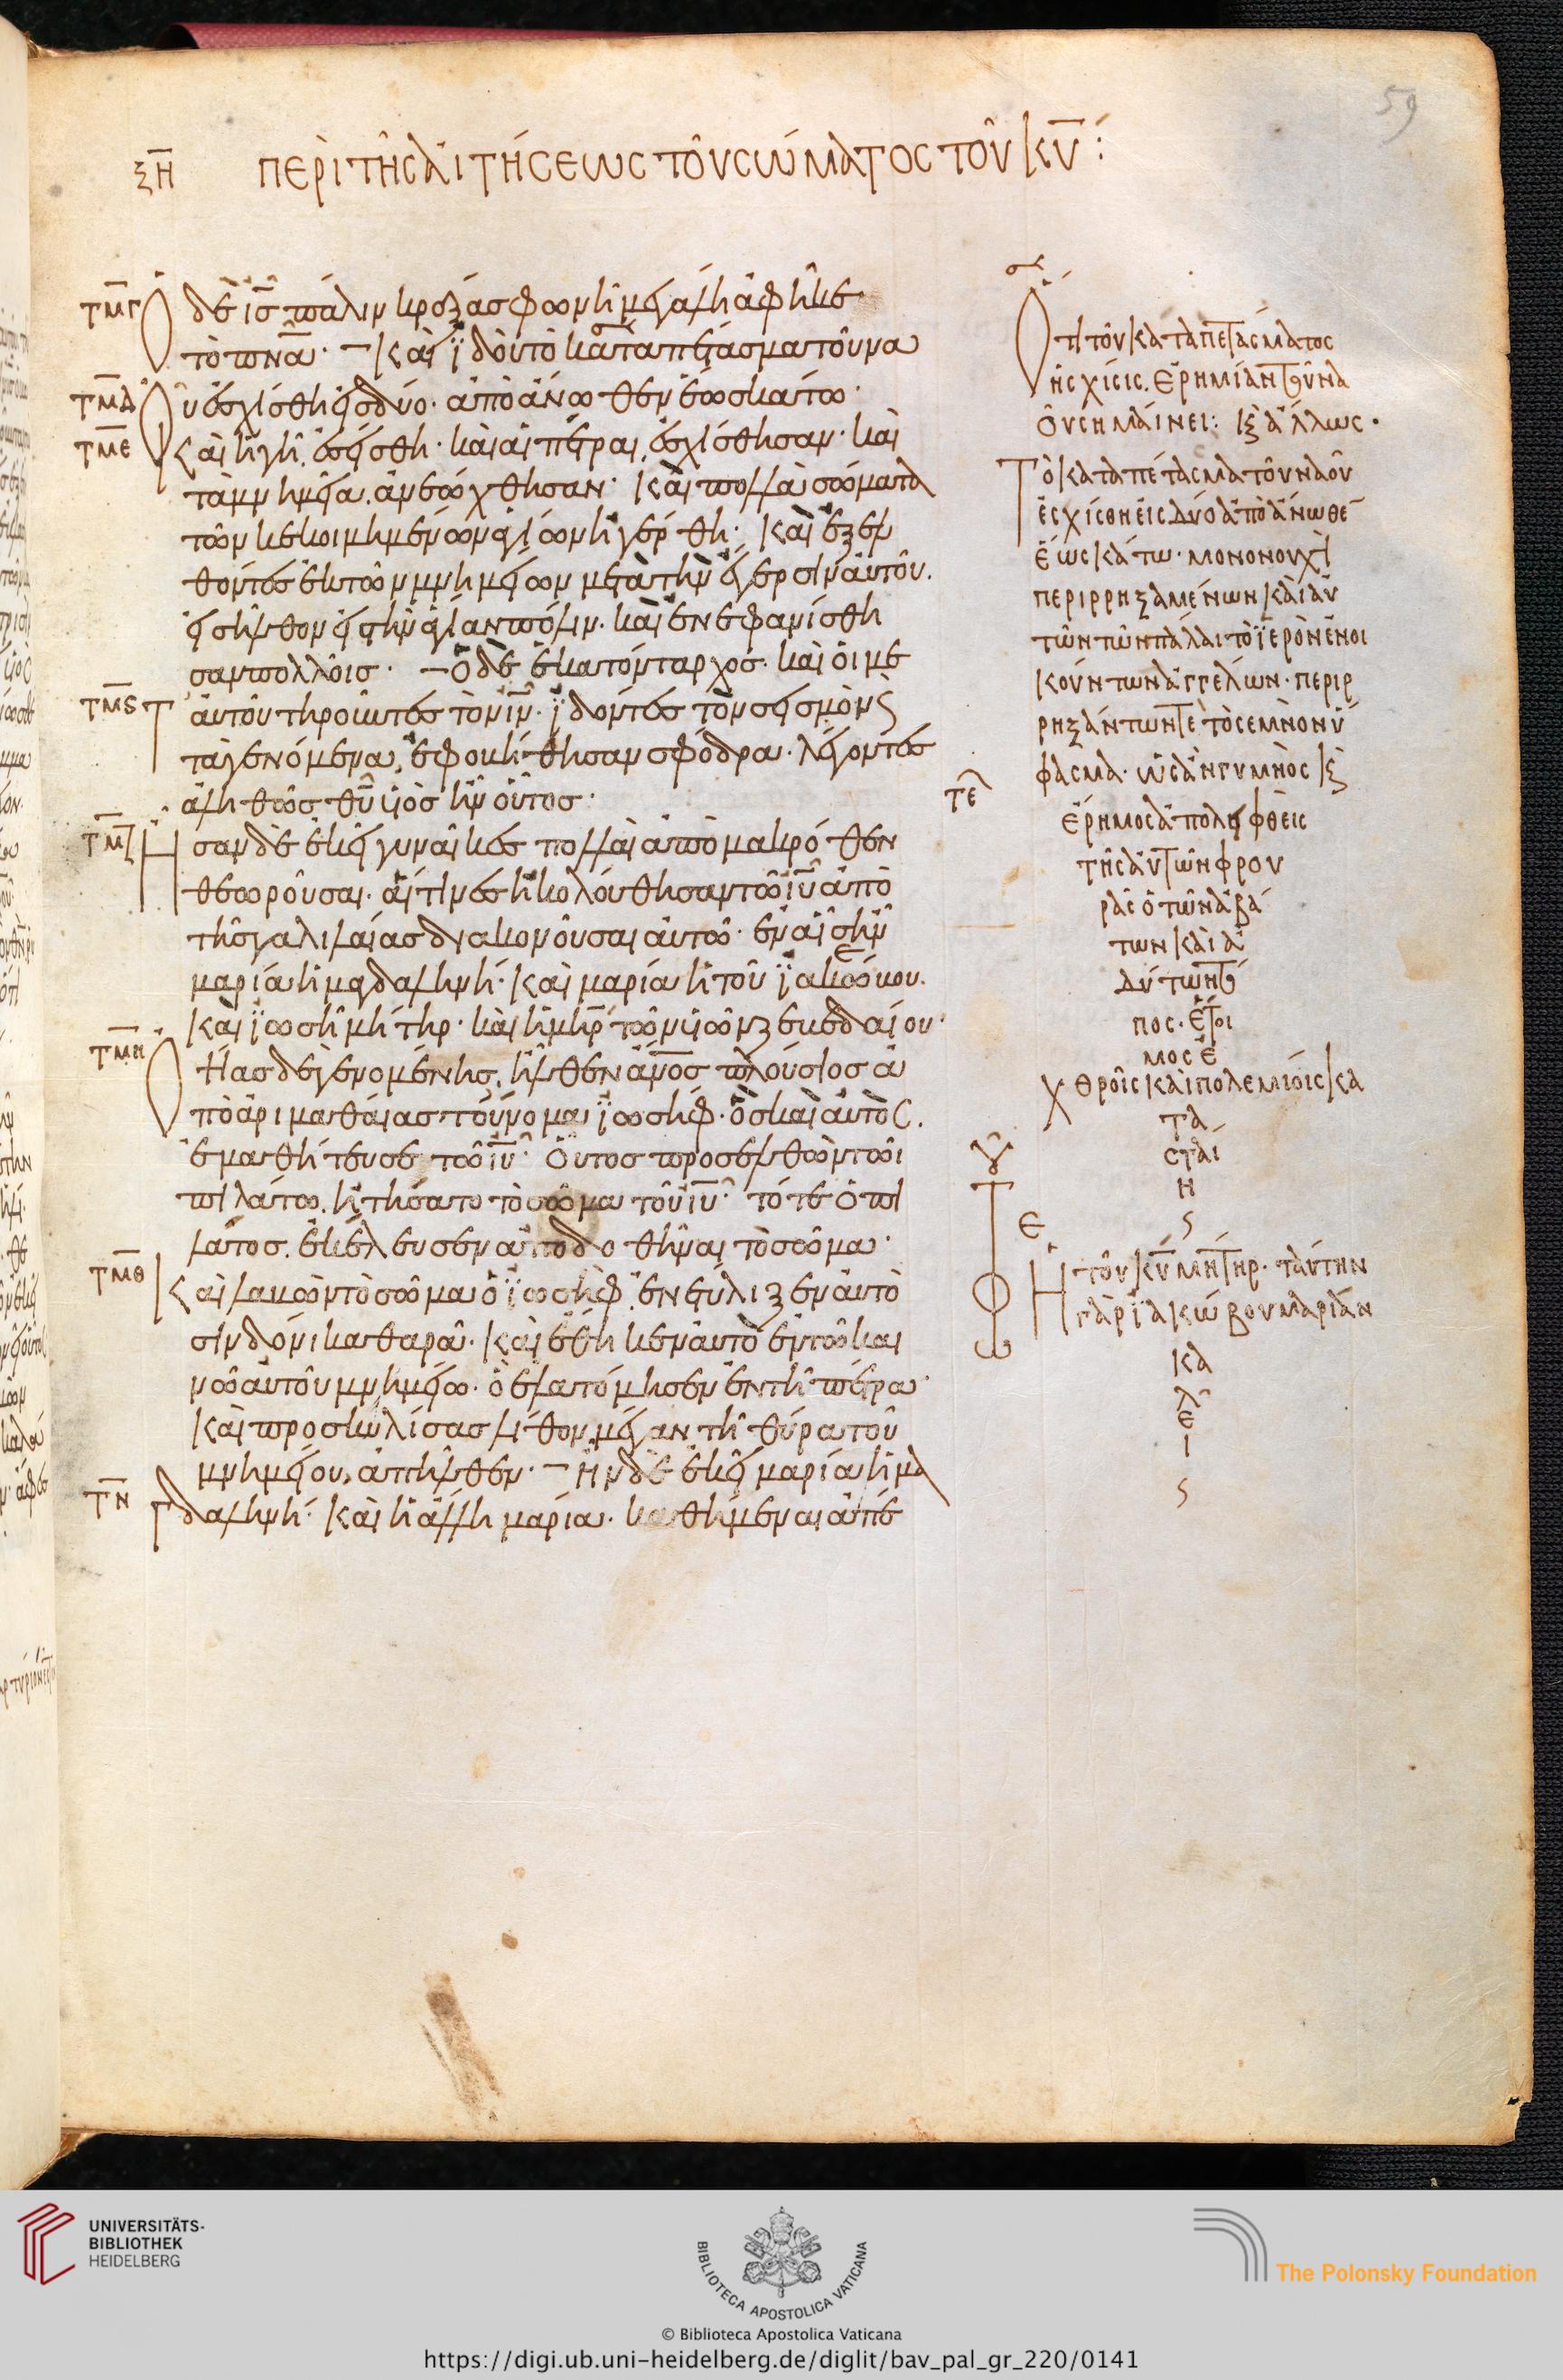 59
ξη περὶ τῆς αἰτήσεως τοῦ σώματος τοῦ κυ:
τμγ Ὁ δὲ ις πάλιν κράξας φωνῆ μεγάλη ἀφῆκε
τὸ πνα· – Καὶ ϊδοὺ τὸ καταπέτασμα τοῦ να
τμδ οῦ ἐσχίσθη εἰς δύο. ἀπὸ ἄνωθεν ἕως κάτω·
τμε Καὶ ἡ γῆ ἐσείσθη· καὶ αἱ πέτραι ἐσχίσθησαν· καὶ
τὰ μνημεῖα ἀνεώχθησαν· Καὶ πολλὰ σώματα
τῶν κεκοιμημένων ἁγίων ἠγέρθη· Καὶ ἐξελ
θόντες ἐκ τῶν μνημείων μετὰ τὴν ἔγερσιν αὐτοῦ.
εἰσῆλθον εἰς τὴν ἁγίαν πόλιν. καὶ ἐνεφανίσθη
σαν πολλοῖς· – Ὁ δὲ ἑκατόνταρχος. καὶ οἱ με
τμς Τ αὐτοῦ τηροῦντες τὸν ιν· ϊδόντες τὸν σεισμὸν ϛ
τὰ γενόμενα, ἐφοβήθησαν σφόδρα. λέγοντες
ἀληθῶς θυ υἱὸς ἦν οὗτος·
τμζ Ἦσαν δὲ ἐκεῖ γυναῖκες πολλαὶ ἀπὸ μακρόθεν
θεωροῦσαι. αἵτινες ἠκολούθησαν τῶ ιυ ἀπὸ
τῆς γαλιλαίας διακονοῦσαι αὐτῶ· ἐν αἷς ἦν
μαρία ἡ μαγδαληνή· Καὶ μαρία ἡ τοῦ ϊακώβου.
Καὶ ϊωσῆ μήτηρ· καὶ ἡ μηρ τῶν υἱῶν ζεβεδαίου·
τμη Ὀψίας δὲ γενομένης, ἦλθεν ανος πλούσιος ἀ
πὸ ἀριμαθαίας τοὔνομα ϊωσήφ· ὃς καὶ αὐτὸς.
ἐμαθήτευσε τῶ ιυ· Οὗτος προσελθὼν τῶι
πιλάτω. ἠτήσατο τὸ σῶμα τοῦ ιυ· τότε ὁ πι
λάτος. ἐκέλευσεν ἀποδοθῆναι τὸ σῶμα·
τμθ Καὶ λαβὼν τὸ σῶμα ὁ ϊωσὴφ ἐνετύλιξεν αὐτὸ
σινδόνι καθαρᾶ. Καὶ ἔθηκεν αὐτὸ ἐν τῶ και
νῶ αὐτοῦ μνημείω. ὃ ἐλατόμησεν ἐν τῆ πέτρα·
Καὶ προσκυλίσας λίθον μέγαν τῆ θύρα τοῦ
μνημείου, ἀπῆλθεν· – Ἦν δὲ ἐκεῖ μαρία ἡ μα
τν γδαληνή· Καὶ ἡ ἄλλη μαρία. καθήμεναι ἀπέ
Ὅτι τοῦ καταπετάσματος
ἡ σχίσις. ἐρημίαν τοῦ να
οῦ σημαίνει: κξ ἄλλως·
Τὸ καταπέτασμα τοῦ ναοῦ
ἐσχίσθη εἰς δύο ἀπὸ ἄνωθε
ἕως κάτω· μονονουχὶ
περιρρηξαμένων καὶ αὐ
τῶν τῶν πάλαι τὸ ϊερὸν ἐνοι
κούντων ἀγγέλων· περιρ
ρηξάντων τε τὸ σεμνὸν ὕ
φασμα. ὡς ἂν γυμνὸς κξ
τε ἔρημος ἀπολειφθεὶς
τῆς αὐτῶν φρου
ρᾶς ὁ τῶν ἀβά
των καὶ ἀ
δύτων τό
πος. ἕτοι
μος ἐ
χθροῖς καὶ πολεμίοις κα
τα
σταί
η
ϛ
Ε Ἡ τοῦ κυ μήτηρ. ταύτην
γὰρ ϊακώβου μαρίαν
κα
λ
ε
ι
ϛ
UNIVERSITÄTS-
BIBLIOTHEK
HEIDELBERG
BIBLIOTECA APOSTOLICA VATICANA
The Polonsky Foundation
© Biblioteca Apostolica Vaticana
https://digi.ub.uni-heidelberg.de/diglit/bav_pal_gr_220/0141